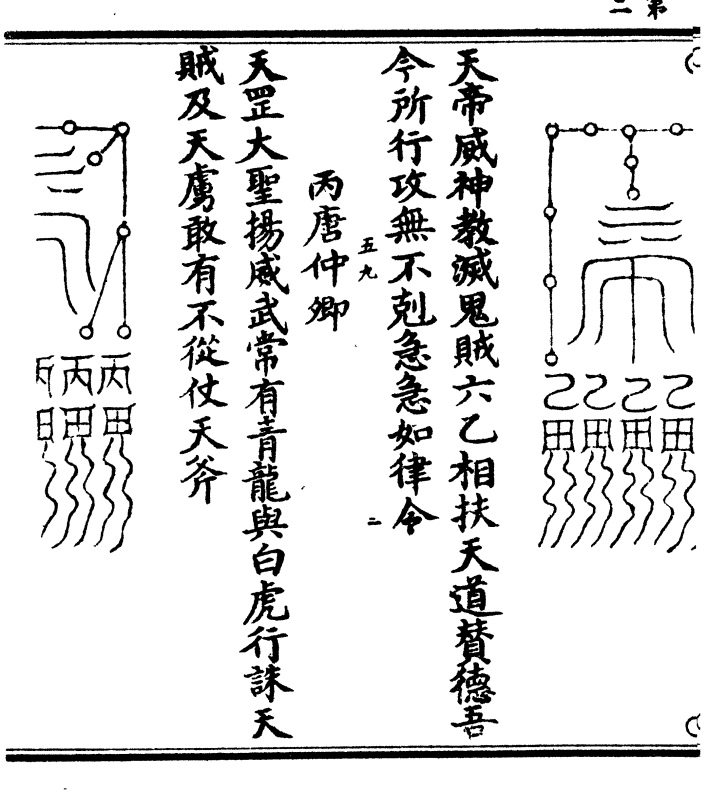 第
二
乙乙乙乙
田田田田
天帝威神教滅鬼賊六乙相扶天道賛德吾
今所行攻無不剋急急如律令
五九 二
丙唐仲卿
天罡大聖揚威武常有青龍與白虎行誅天
賊及天虜敢有不從仗天斧
丙丙丙
田田田